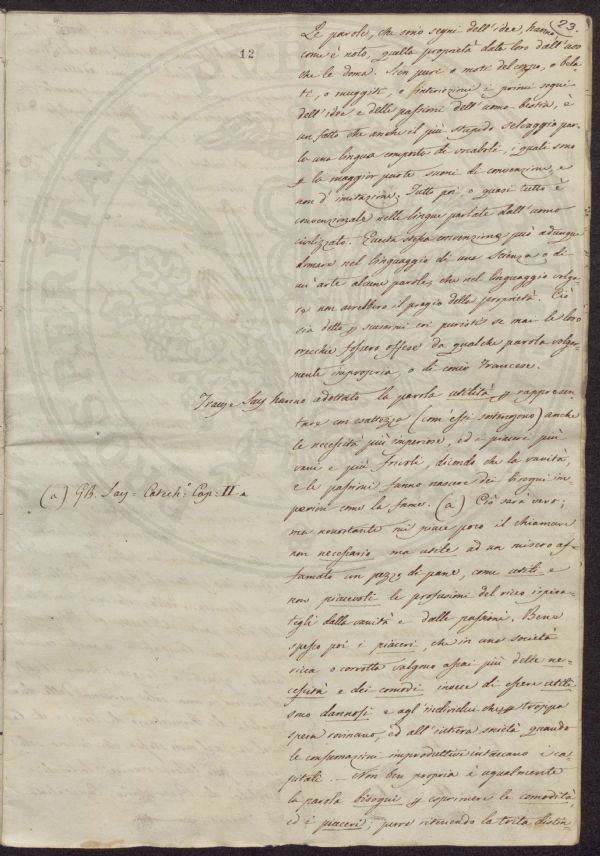 23.
12
Le parole, che sono segni dell'idee, hanno,
come è noto, quella proprietà data loro dall'uso
che le doma. Sien puri o moti del corpo, o bela-
ti, o muggiti, o interiezioni i primi segni
dell'idee e delle passioni dell'uomo bestia, è
un fatto che anche il più stupido selvaggio par-
la una lingua composta di vocaboli, i quali sono
la maggior parte suoni di convenzione e
non d'imitazione. Tutto poi o quasi tutto è
convenzionale nelle lingue parlate dall'uomo
civilizzato. Questa stessa convenzione può adunque
domare nel linguaggio di una scienza o di
un'arte alcune parole, che nel linguaggio volga-
re non avrebbero il pregio della proprietà. Ciò
sia detto p scusarmi coi puristi se mai le loro
orecchie fossero offese da qualche parola volgar-
mente impropria, o di conio Francese.
Tracy e Say hanno adottato la parola utilità p rappresen-
tare con esattezza (com'essi intengono) anche
le necessità più imperiose, ed i piaceri più
vani e più frivoli, dicendo che la vanità,
e le passioni fanno nascere dei bisogni im-
periosi come la fame. (a) Ciò sarà vero;
ma nonostante mi piace poco il chiamare
non necessario, ma utile ad un misero af-
famato un pezzo di pane, come utili e
non piacevoli le profusioni del ricco ispira-
tegli dalla vanità e dalle passioni. Bene
spesso poi i piaceri, che in una società
ricca o corrotta valgono assai più delle ne-
cessità e dei comodi, invece di essere utili
sono dannosi e agl'individui che p troppa
spesa rovinano, ed all'intiera società quando
le consumazioni improduttive intaccano i ca-
pitali .... Non ben propria è egualmente
la parola bisogni p esprimere le comodità,
ed i piaceri; pure ritenendo la trita distin-
(a) GB. Say = Catech.º Cap: II.